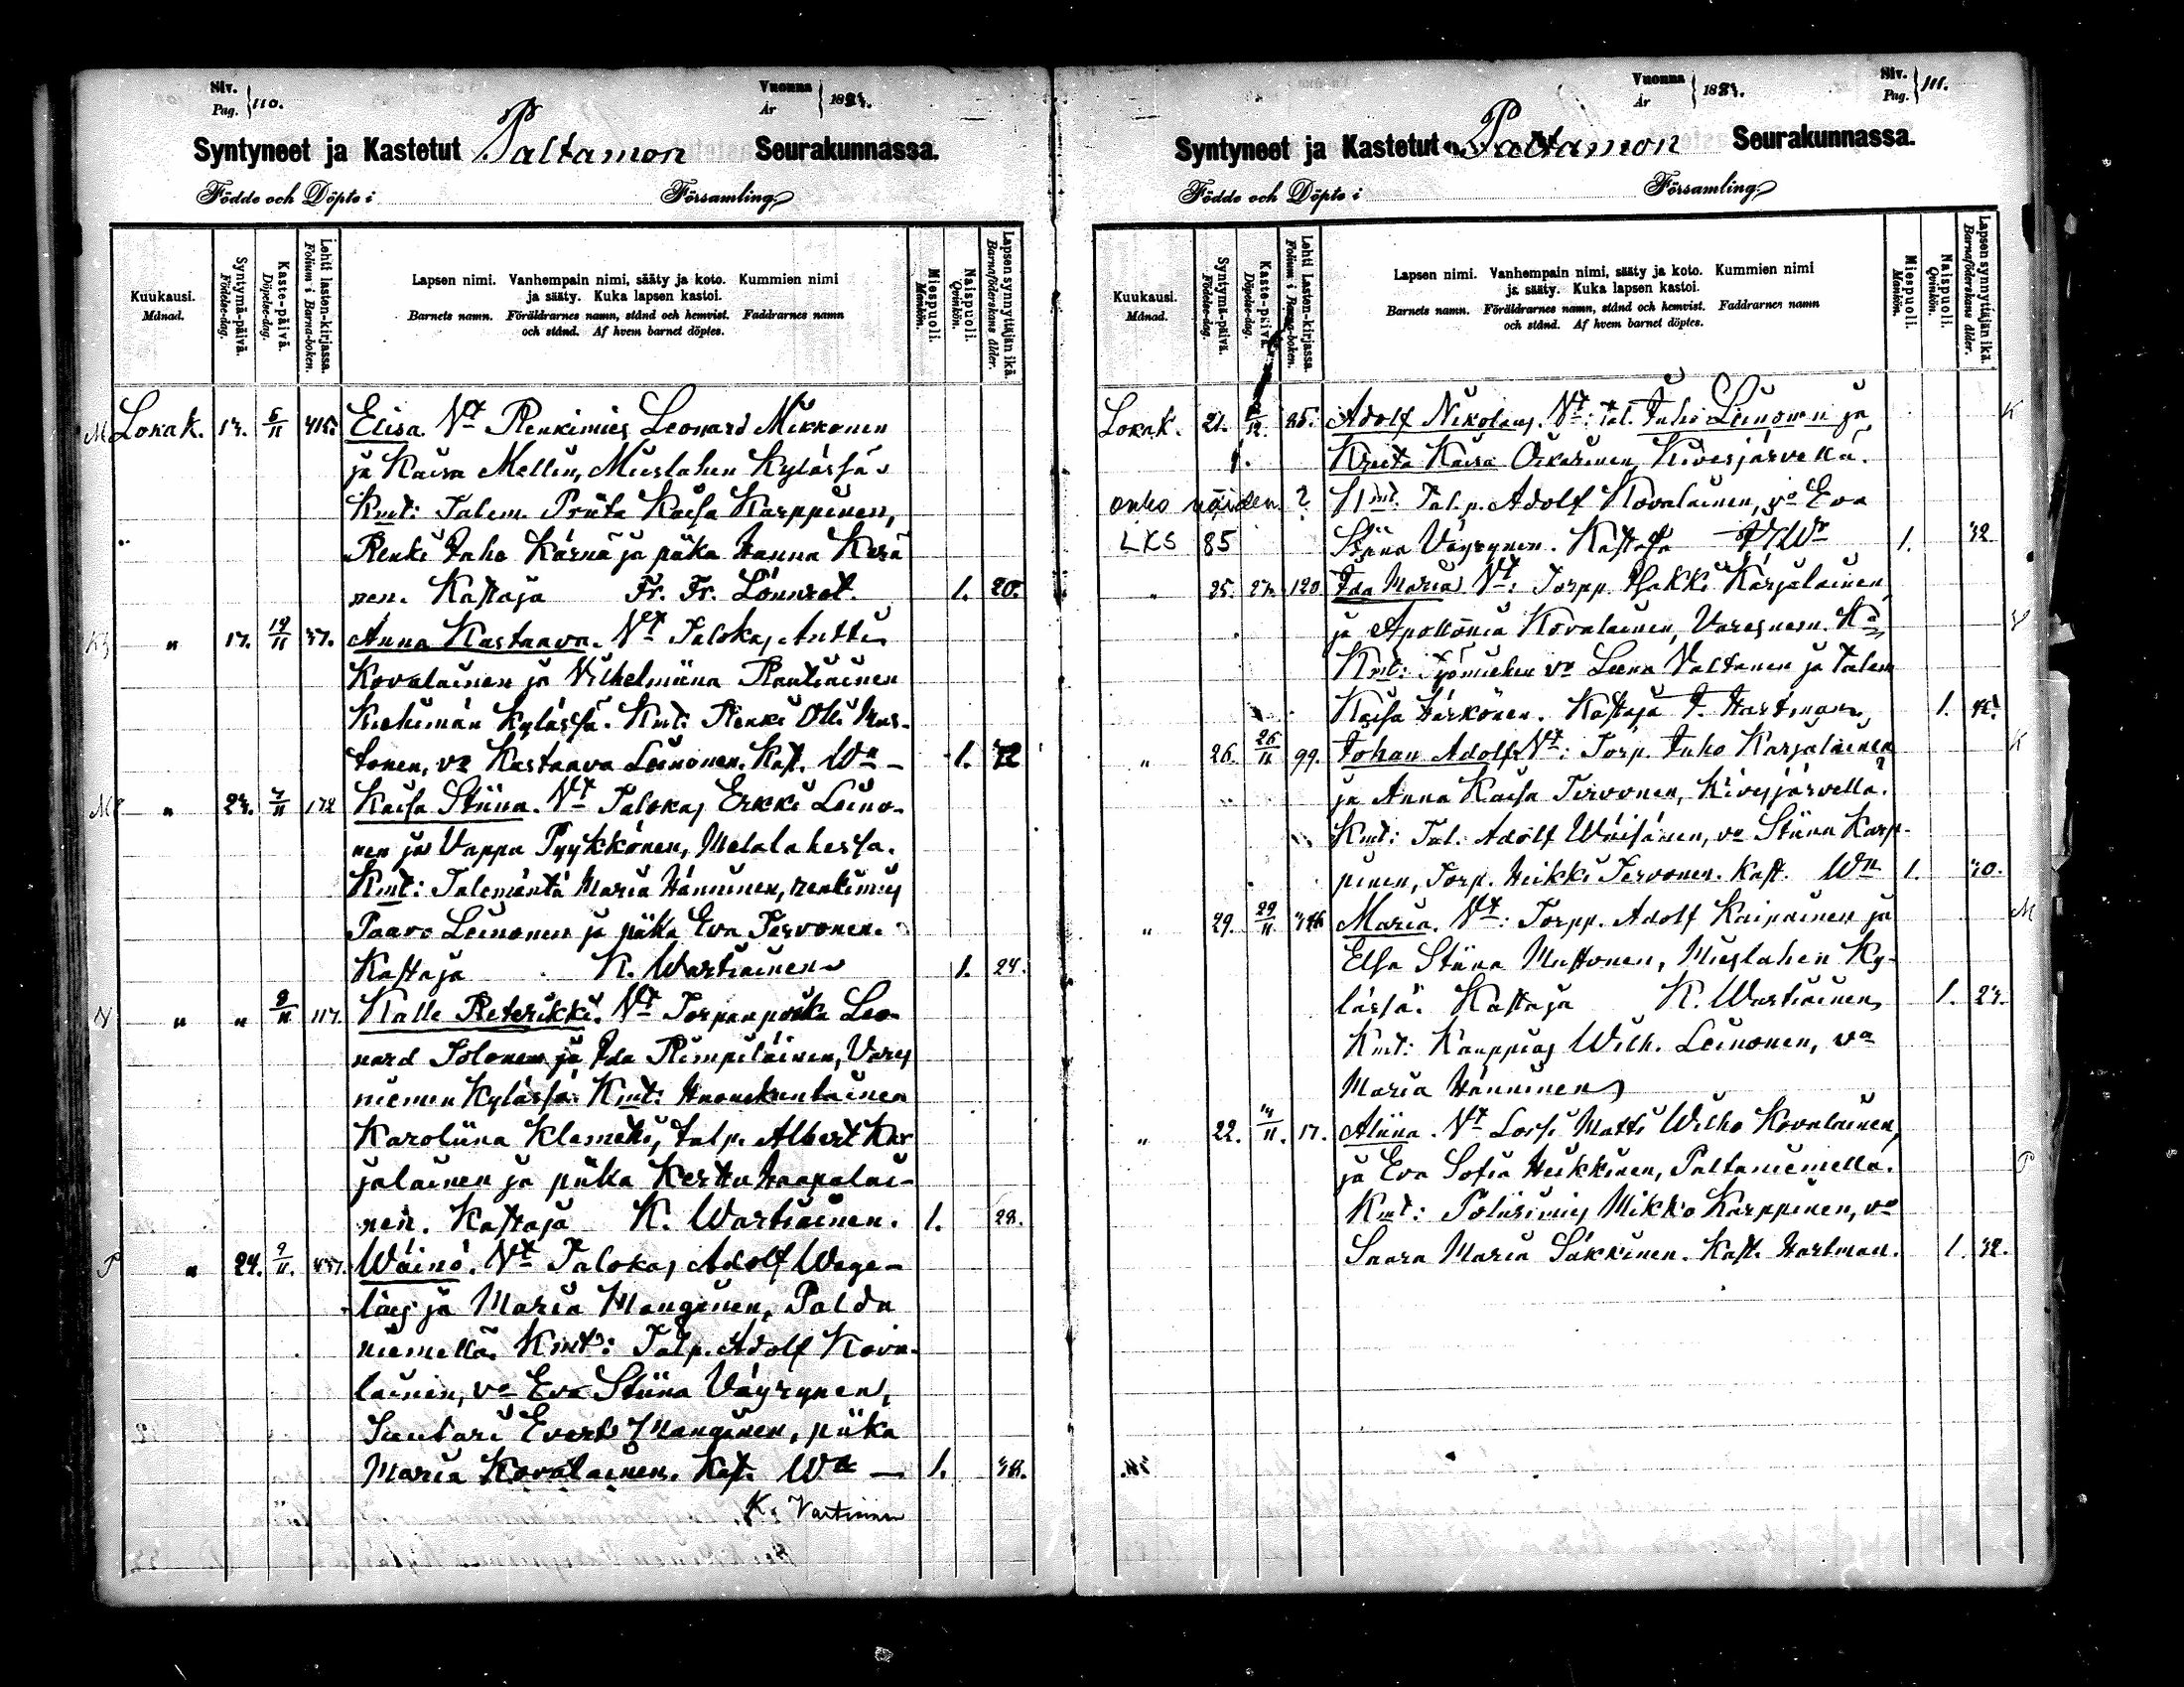 Siv.
Pag. 110.
Vuonna
År 188
Syntyneet ja Kastetut Paltamon Seurakunnassa.
Födde och Döpte i Församling
Kuukausi.
Månad.
Syntymä-päivä.
Födelse-dag.
Kaste-päivä.
Döpelse-dag.
Lehti lasten-kirjassa.
Folium i Barna-boken.
Lapsen nimi. Vanhempain nimi, sääty ja koto. Kummien nimi
ja sääty. Kuka lapsen kastoi.
Barnets namn. Föräldrarnes namn, stånd och hemvist. Faddrarnes namn
och stånd. Af hvem barnet döptes.
Miespuoli.
Mankön.
Naispuoli.
Qvinkön.
Lapsen synnyttäjän ikä.
Barnaföderskans ålder.
M Lokak. 6/11 Elisa. Vt Renkimies Leonard Mikkonen
ja Kaisa Mellin, Mieslahen Kylässä
Kmt: Talem. Priita Kaisa Karppinen,
Renki Juho Kärnä ja piika Hanna Kerä
nen. Kastaja Fr. Fr. Lönnrot. 1. 20.
" Anna Kustaava. Vt Talokas Antti
Kovalainen ja Vilhelmiina Rautiainen
Kiehimän Kylässä. Kmt: Renki Olli
tonen, vo Kustaava Leinonen. Kast. Wn 1.
M " 7/11 178 Kaisa Stiina. Vt Talokas Erkki Leino-
nen ja Vappu Pyykkönen, Melalahessa.
Kmt: Talemäntä Maria Hänninen, renkimies
Paavo Leinonen ja piika Eva Tervonen.
Kastaja K. Wartiainen 1. 24.
N " " 8/11 Kalle Reterikki. Vt Torpanpoika Leo-
nard Tolonen ja Ida Rimpiläinen, Vares
niemen Kylässä. Kmt: Huonekuntainen
Karoliina Klemetti, talp. Albert Kar
jalainen ja piika Kerttu Haapalai-
nen. Kastaja K. Wartiainen. 1. 28.
P " 24. 9/11. Wäinö. Vt Talokas Adolf Wege-
lius ja Maria Manginen, Palda
niemellä. Kmt: Talp. Adolf Kova-
lainen, vo Eva Stiina Väyrynen,
Suutari Evert Manginen, piika
Maria Kovalainen. Kast. Wn 1. 38.
K. Vartiainen
Siv.
Pag. 111.
Vuonna
År 188
Syntyneet ja Kastetut Paltamon Seurakunnassa.
Födde och Döpte i Församling
Kuukausi.
Månad.
Syntymä-päivä.
Födelse-dag.
Kaste-päivä.
Döpelse-dag.
Lehti Lasten-kirjassa.
Folium i Barna-boken.
Lapsen nimi. Vanhempain nimi, sääty ja koto. Kummien nimi
ja sääty. Kuka lapsen kastoi.
Barnets namn. Föräldrarnes namn, stånd och hemvist. Faddrarnes namn
och stånd. Af hvem barnet döptes.
Miespuoli.
Mankön.
Naispuoli.
Qvinkön.
Lapsen synnyttäjän ikä.
Barnaföderskans ålder.
Lokak. 21. 85. Adolf Nikolaus. Vt: Tal. Juho Leinonen ja K
Kreeta Kaisa Oikarinen, Kivesjärvellä.
onko näiden ? Kmt. Talp. Adolf Kovalainen, vo Eva
LKS 85 Stiina Väyrynen. Kastaja 1. 32
" 25. 27. 120 Ida Maria. Vt: Torpp. Heikki Karjalainen
ja Apollonia Kovalainen, Varesniem. Kä
Kmt: Työmiehen vo Leena Valtanen ja talem
Kaisa Härkönen. Kastaja F. Hartman, 1.
" 26. 26/11 99. Johan Adolf. Vt: Torp. Juho Karjalainen K
ja Anna Kaisa Tervonen, Kivesjärvellä.
Kmt: Tal. Adolf Wäisänen, vo Stiina Karp-
pinen, Torp. Heikki Tervonen. Kast. Wn 1. 30.
" 29. 29/11 Maria. Vt: Torpp. Adolf Kainainen ja M
Elsa Stiina Mustonen, Mieslahen Ky-
lässä. Kastaja K. Wartiainen 1.
Kmt: Kauppias Wilh. Leinonen, va
Maria Hänninen
" 22. Aliina. Vt Losi Matti Wilho Kovalainen,
ja Eva Sofia Heikkinen, Paltaniemellä. P
Kmt: Poliisimies Mikko Karppinen, vo
Saara Maria Säkkinen. Kast. Hartman. 1. 32.